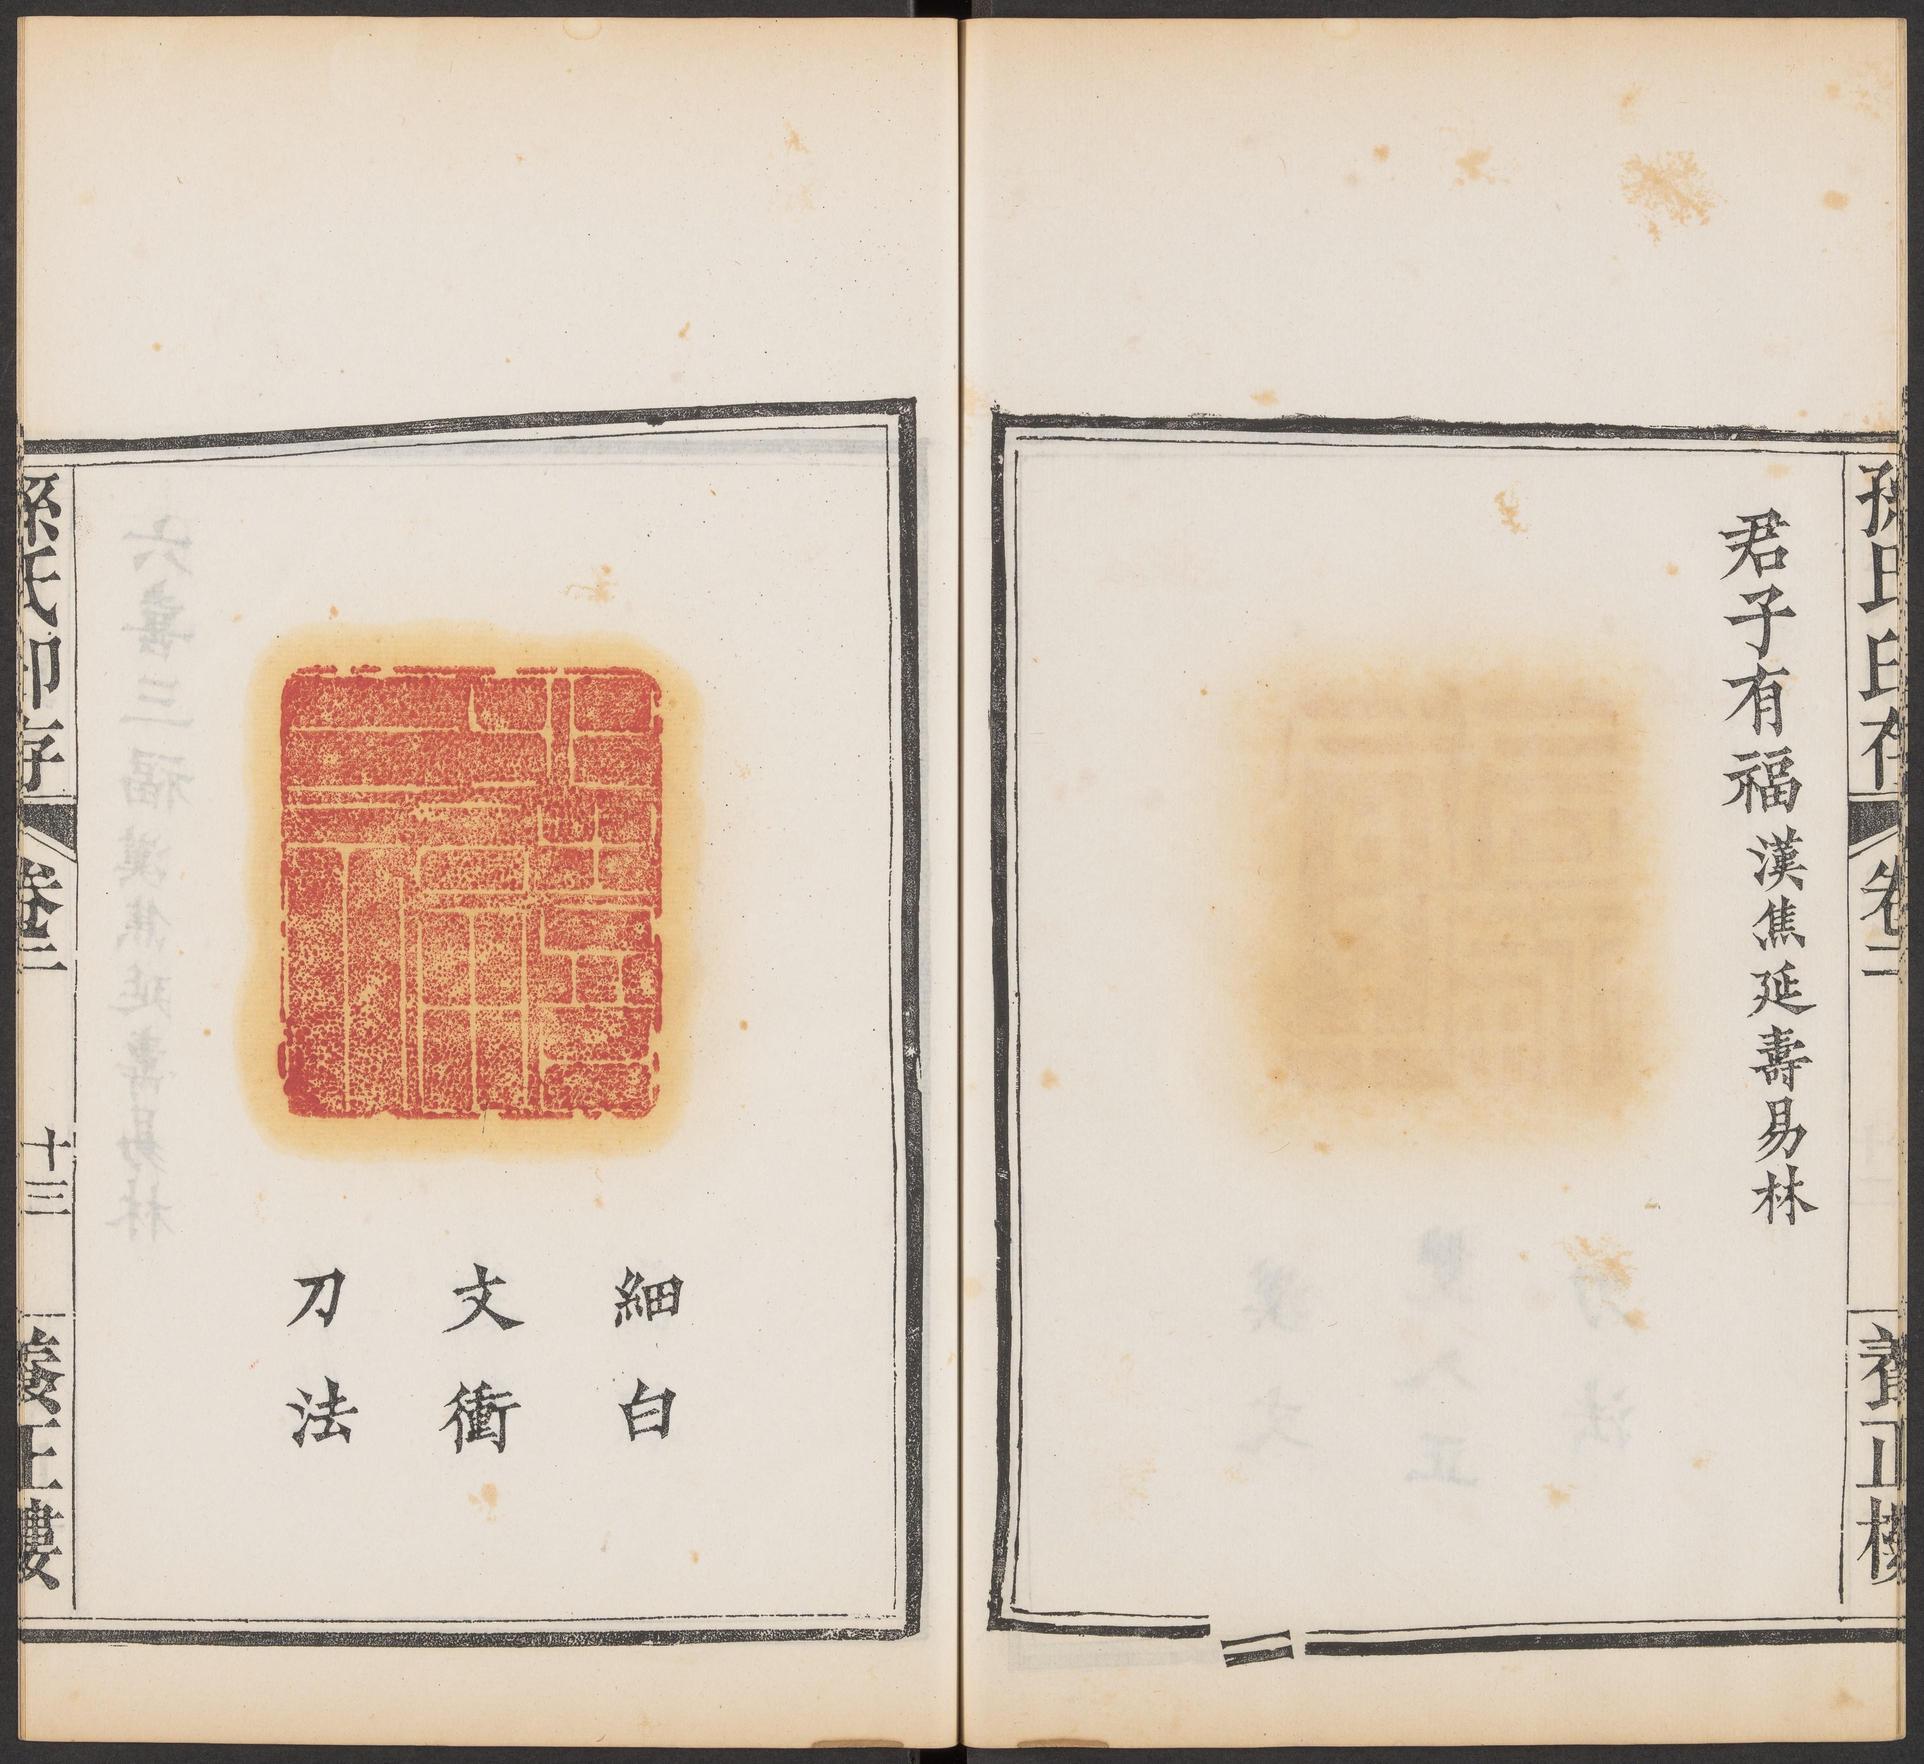 孫氏印存
卷二
養正樓
君子有福漢焦延壽易林
細白
文衝
刀法
孫氏印存
卷二
十三
養正樓